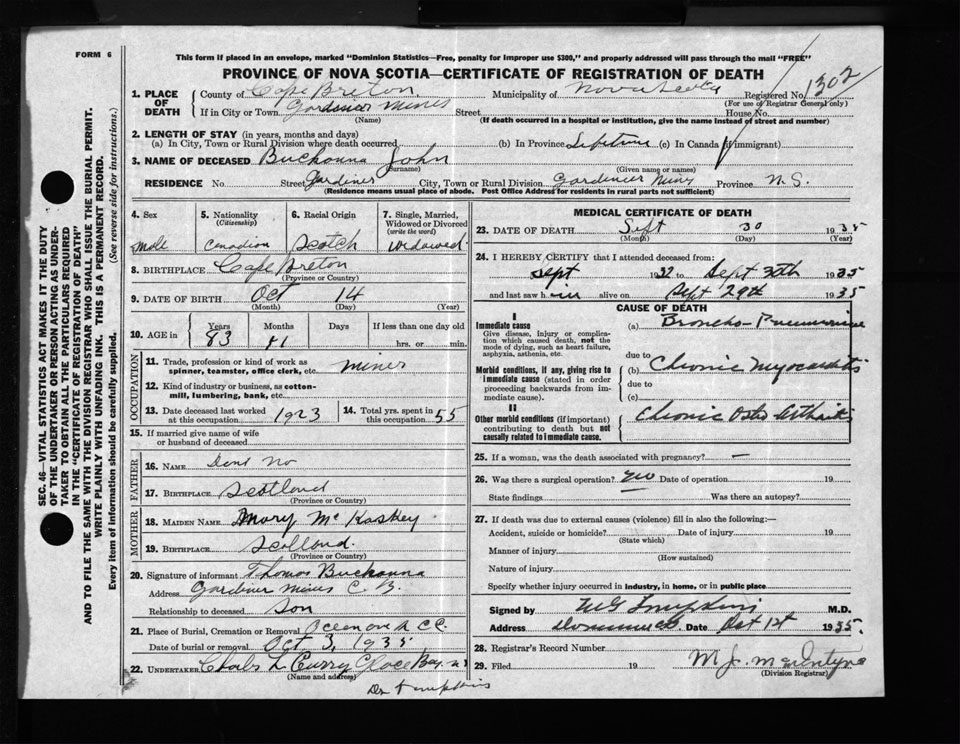 FORM 6
This form if placed in an envelope, marked "Dominion Statistics—Free, penalty for improper use $300," and properly addressed will pass through the mail "FREE"
PROVINCE OF NOVA SCOTIA—CERTIFICATE OF REGISTRATION OF DEATH
1302
SEC. 46—VITAL STATISTICS ACT MAKES IT THE DUTY
OF THE UNDERTAKER OR PERSON ACTING AS UNDER-
TAKER TO OBTAIN ALL THE PARTICULARS REQUIRED
IN THE "CERTIFICATE OF REGISTRATION OF DEATH"
AND TO FILE THE SAME WITH THE DIVISION REGISTRAR WHO SHALL ISSUE THE BURIAL PERMIT.
WRITE PLAINLY WITH UNFADING INK. THIS IS A PERMANENT RECORD.
Every item of information should be carefully supplied. (See reverse side for instructions.)
1. PLACE OF DEATH
County of Cape Breton Municipality of Nova Scotia Registered No.
(For use of Registrar General only)
If in City or Town Gardinier Mines Street House No.
(Name) (If death occurred in a hospital or institution, give the name instead of street and number)
2. LENGTH OF STAY (in years, months and days)
(a) In City, Town or Rural Division where death occurred (b) In Province Lifetime (c) In Canada (if immigrant)
3. NAME OF DECEASED Buchanna John
(Surname) (Given name or names)
RESIDENCE No. Street Gardiner City, Town or Rural Division Gardinier Mines Province N.S.
(Residence means usual place of abode. Post Office Address for residents in rural parts not sufficient)
4. Sex
male
5. Nationality
(Citizenship)
Canadian
6. Racial Origin
Scotch
7. Single, Married,
Widowed or Divorced
(write the word)
widowed
8. BIRTHPLACE Cape Breton
(Province or Country)
9. DATE OF BIRTH Oct 14
(Month) (Day) (Year)
10. AGE in Years Months Days If less than one day old
83 11 hrs. or min.
OCCUPATION
11. Trade, profession or kind of work as
spinner, teamster, office clerk, etc. miner
12. Kind of industry or business, as cotton-
mill, lumbering, bank, etc.
13. Date deceased last worked
at this occupation 1923
14. Total yrs. spent in
this occupation 55
15. If married give name of wife
or husband of deceased
FATHER
16. NAME Dont No
17. BIRTHPLACE Scotland
(Province or Country)
MOTHER
18. MAIDEN NAME Mary McKaskey
19. BIRTHPLACE Scotland.
(Province or Country)
20. Signature of informant Thomas Buchanna
Address Gardiner Mines C. B.
Relationship to deceased Son
21. Place of Burial, Cremation or Removal
Date of burial or removal Oct 3, 1935
22. UNDERTAKER L Curry Glace Bay. N S
(Name and address)
Dr Tompkins
MEDICAL CERTIFICATE OF DEATH
23. DATE OF DEATH Sept 30 1935
(Month) (Day) (Year)
24. I HEREBY CERTIFY that I attended deceased from:
Sept 1932 to Sept 30th 1935
and last saw him alive on Sept 29th 1935
CAUSE OF DEATH
I
Immediate cause
Give disease, injury or complica-
tion which caused death, not the
mode of dying, such as heart failure,
asphyxia, asthenia, etc.
(a) Broncho-Pneumonia
due to
Morbid conditions, if any, giving rise to
immediate cause (stated in order
proceeding backwards from im-
mediate cause).
(b) Chronic Myocarditis
due to
(c)
II
Other morbid conditions (if important)
contributing to death but not
causally related to immediate cause.
Chronic Osteo Arthritis
25. If a woman, was the death associated with pregnancy? —
26. Was there a surgical operation? no Date of operation 19
State findings Was there an autopsy?
27. If death was due to external causes (violence) fill in also the following:—
Accident, suicide or homicide? Date of injury 19
(State which)
Manner of injury
(How sustained)
Nature of injury
Specify whether injury occurred in industry, in home, or in public place
Signed by M G Tompkins M.D.
Address Dominion C.B. Date Oct 1st 1935.
28. Registrar's Record Number
29. Filed 19 M. J. McIntyre
(Division Registrar)